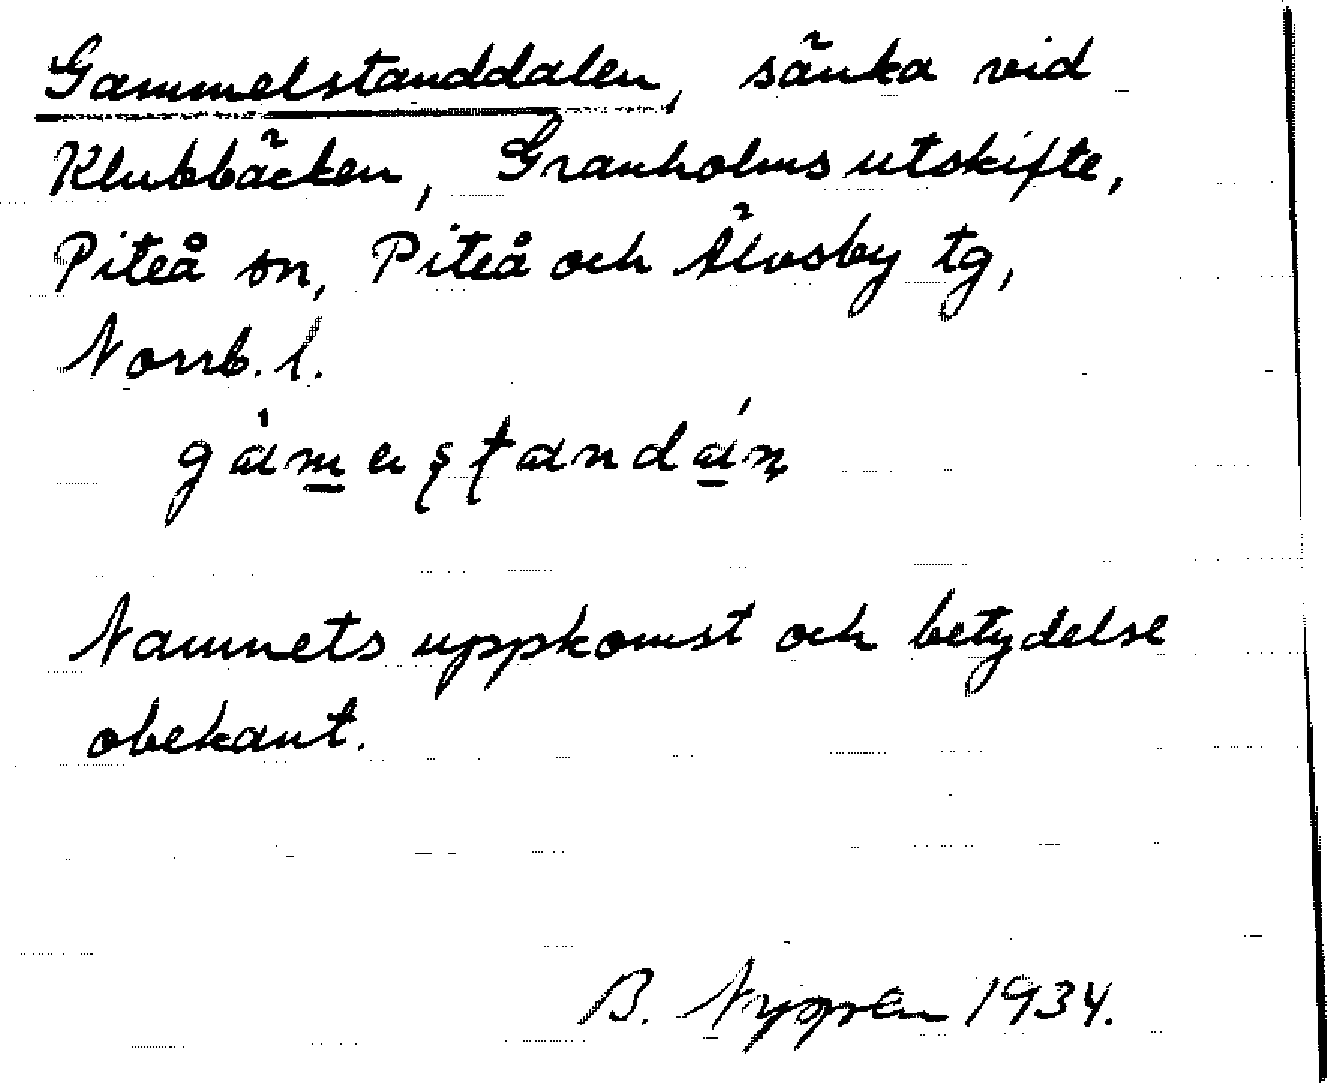 Gammelstanddalen, sänka vid
Klubbäcken, Granholms utskifte,
Piteå sn, Piteå och Älvsby tg,
Norrb. l.
Namnets uppkomst och betydelse
obekant.
B. Nyppen 1934.